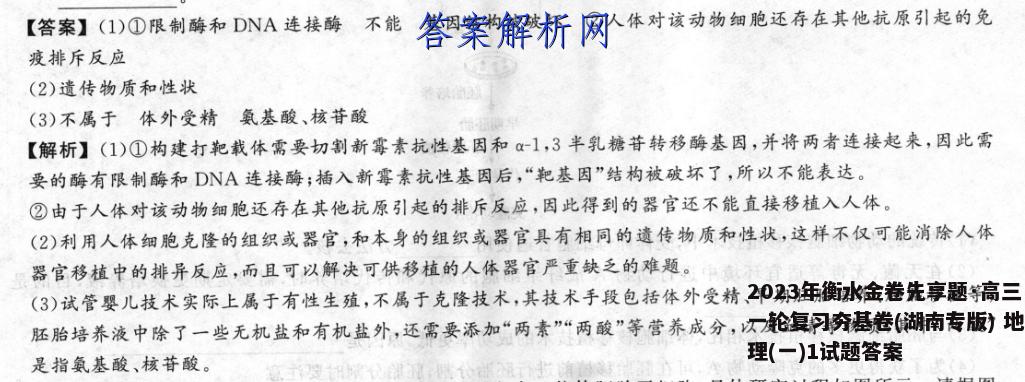 【答案】(1)①限制酶和 DNA 连接酶 不能 基因结构被破坏 ②人体对该动物细胞还存在其他抗原引起的免
答案解析网
疫排斥反应
(2)遗传物质和性状
(3)不属于 体外受精 氨基酸、核苷酸
【解析】(1)①构建打靶载体需要切割新霉素抗性基因和 α-1,3 半乳糖苷转移酶基因,并将两者连接起来,因此需
要的酶有限制酶和 DNA 连接酶;插入新霉素抗性基因后,“靶基因”结构被破坏了,所以不能表达。
②由于人体对该动物细胞还存在其他抗原引起的排斥反应,因此得到的器官还不能直接移植入人体。
(2)利用人体细胞克隆的组织或器官,和本身的组织或器官具有相同的遗传物质和性状,这样不仅可能消除人体
器官移植中的排异反应,而且可以解决可供移植的人体器官严重缺乏的难题。
(3)试管婴儿技术实际上属于有性生殖,不属于克隆技术,其技术手段包括体外受精、等
胚胎培养液中除了一些无机盐和有机盐外,还需要添加“两素”“两酸”等营养成分,以及
是指氨基酸、核苷酸。
2023年衡水金卷先享题·高三
一轮复习夯基卷(湖南专版) 地
理(一)1试题答案